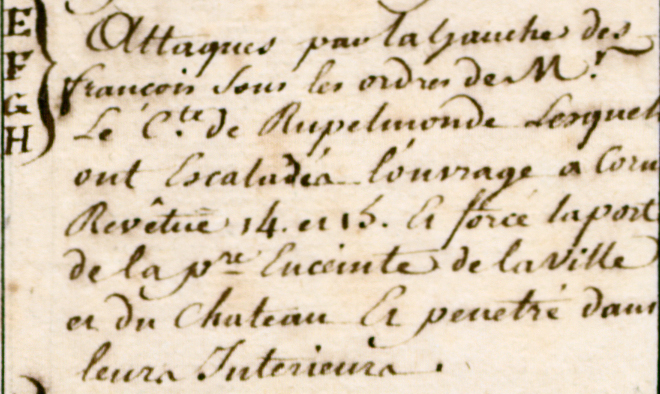 E
F
G
H
Attaques par la Gauche des
françois sous les ordres de M.r
Le C.te de Rupelmonde Lesquels
ont Escaladés l'ouvrage a Corn
Revêtue 14. et 15. Et forcé la port
de la p.re Enceinte de la Ville
et du Chateau Et penetré dans
leurs Interieurs.